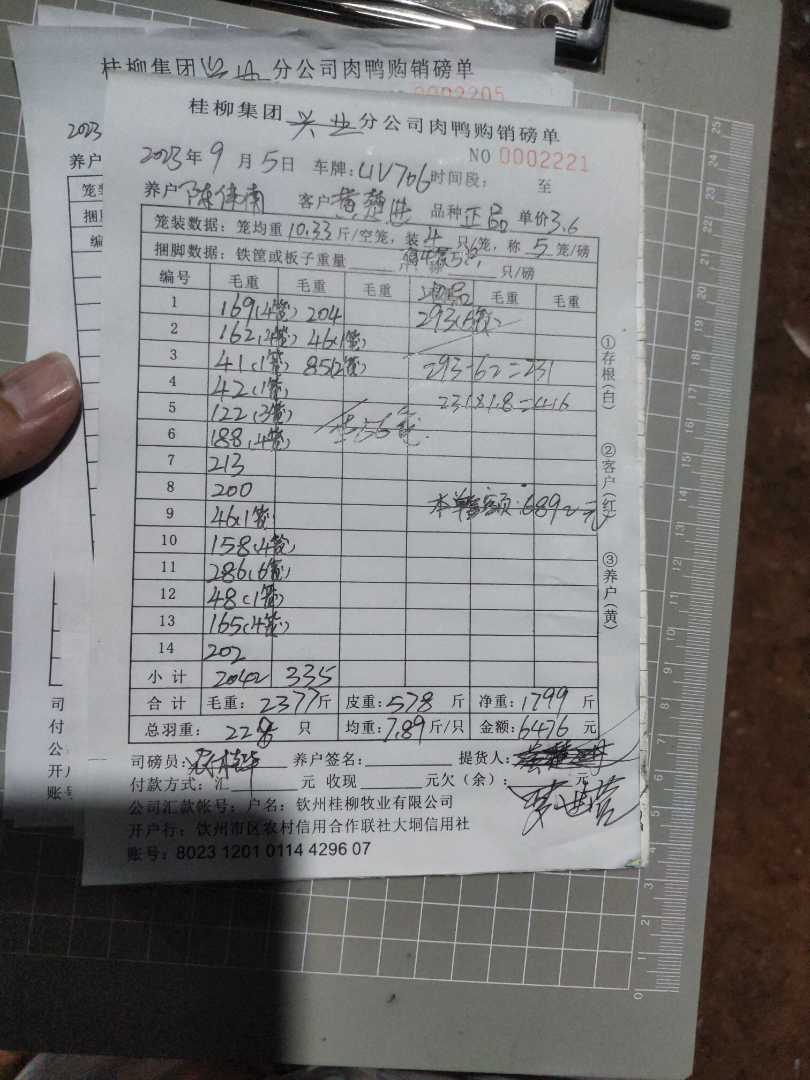 桂柳集团 分公司肉鸭购销磅单
0002205
2023
桂柳集团兴业分公司肉鸭购销磅单
NO 0002221
2023年9月5日 车牌:UV706 时间段: 至
养户 陈伟南 客户 品种 正品 单价3.6
笼装数据:笼均重10.33斤/空笼,装4只/笼,称5笼/磅
捆脚数据:铁筐或板子重量 只/磅
编号 毛重 毛重 毛重 毛重 毛重
1 169(4笼) 204 293(6笼)
2 162(4笼) 46(1笼)
3 41(1笼) 85(2笼) 293-62=231
4 42(1笼)
5 122(3笼) 231×1.8=416
6 188(4笼) 56笼
7 213
8 200
9 46(1笼) 本单金额:6892元
10 158(4笼)
11 286(6笼)
12 48(1笼)
13 165(4笼)
14 202
小计 2042 335
合计 毛重:2377斤 皮重:578斤 净重:1799斤
总羽重:228只 均重:7.89斤/只 金额:6476元
司磅员: 养户签名: 提货人:
付款方式:汇 元 收现 元欠(余): 元
公司汇款帐号:户名:钦州桂柳牧业有限公司
开户行:钦州市区农村信用合作联社大垌信用社
账号:8023 1201 0114 4296 07
①存根(白)
②客户(红)
③养户(黄)